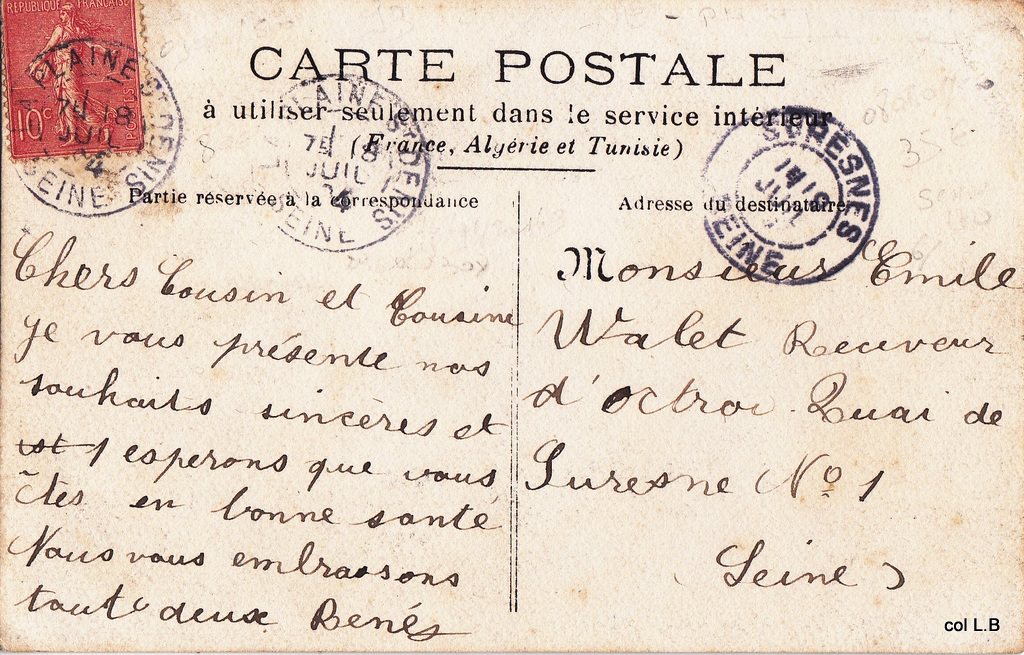 RÉPUBLIQUE FRANÇAISE
10c
POSTES
PLAINE ST DENIS
7E 18
JUIL
04
SEINE
CARTE POSTALE
à utiliser seulement dans le service intérieur
(France, Algérie et Tunisie)
PLAINE ST DENIS
7E 18
JUIL
04
SEINE
SURESNES
SEINE
Partie réservée à la correspondance
Chers Cousin et Cousine
je vous présente nos
souhaits sincères et
esperons que vous
êtes en bonne santé
Nous vous embrassons
tout deux Renés
Adresse du destinataire
Monsieur Emile
Walet Receveur
d'octroi Quai de
Suresne No 1
(Seine)
col L.B